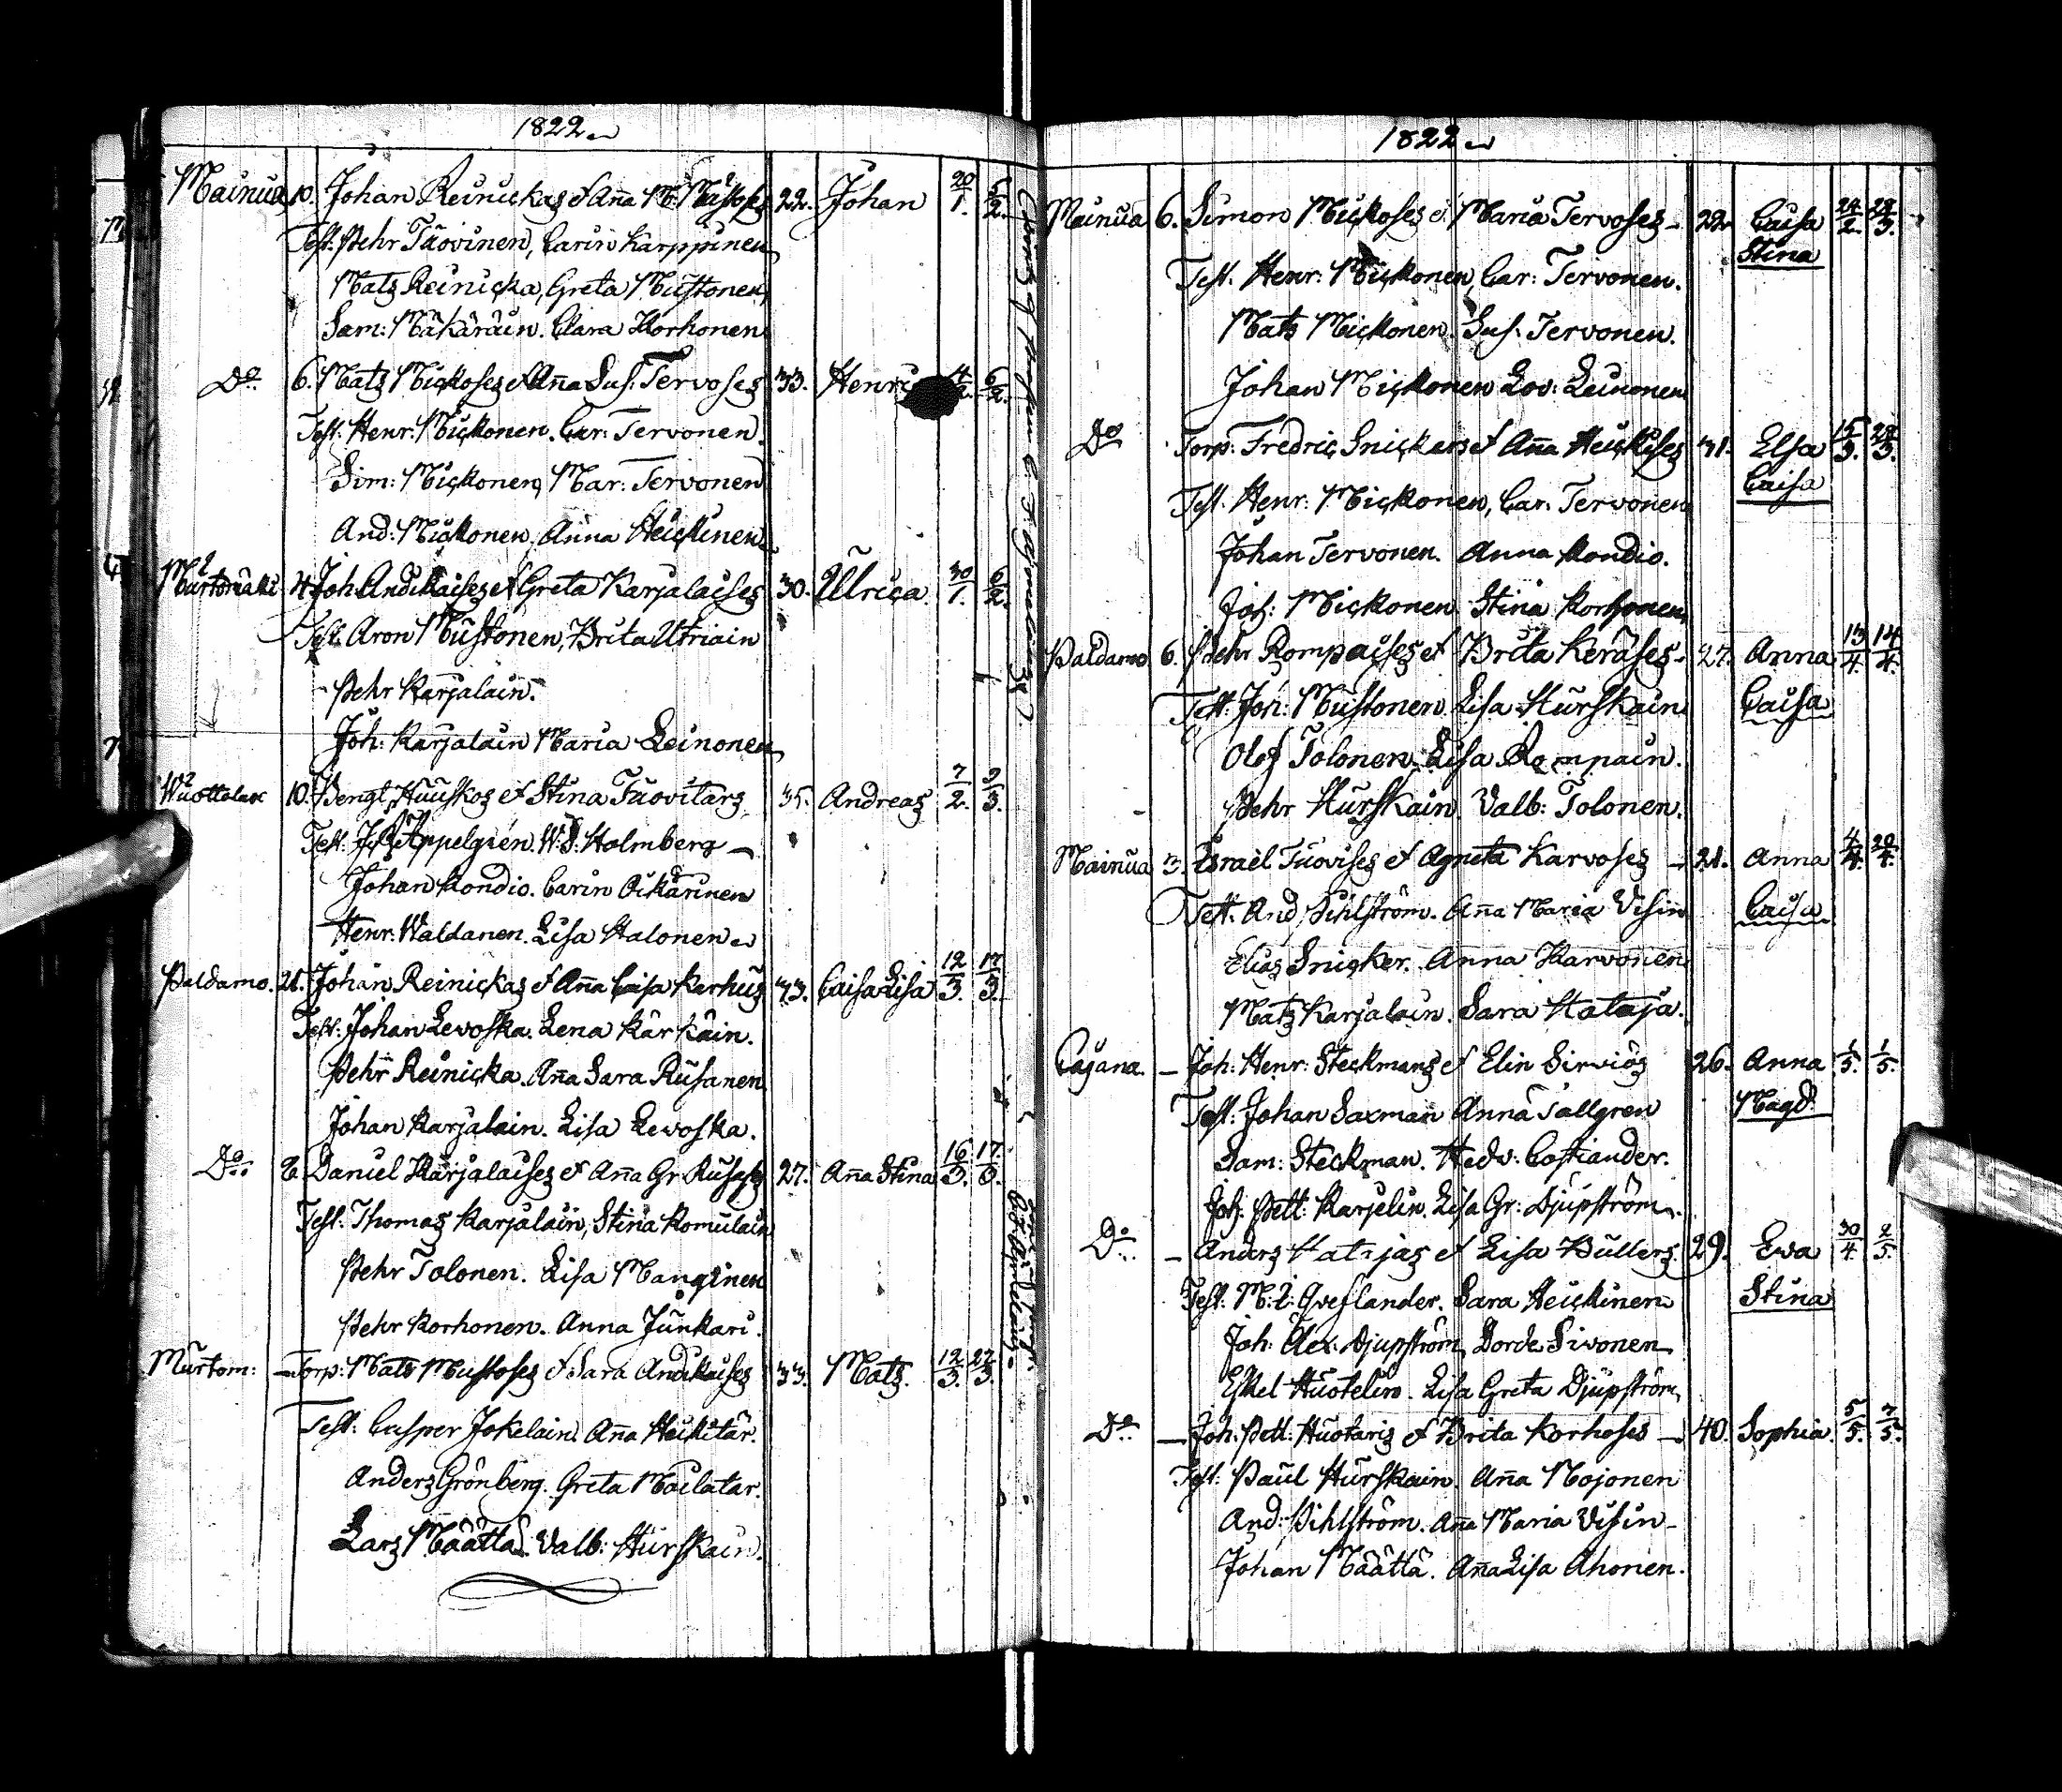 1822
Mainua 10. Johan Reinickas et Anna M: Mustoses 22. Johan 20/1. 5/2.
Test. Pehr Tuovinen, Carin Karppinen
Mats Reinicka, Greta Mustonen,
Sam: Mäkäräin. Clara Korhonen
Do 6. Mats Mickoses et Anna Sus: Tervoses 33. 4/2. 6/2.
Test: Henr: Mickonen. Car: Tervonen.
Sim: Mickonen, Mar: Tervonen
And: Mickonen, Anna Heickinen
Murtomäki 4. Joh: Andikaises et Greta Karjalaises 30. Ulrica 30/1. 6/2.
Test. Aron Mustonen, Brita Utriain
Pehr Karjalain.
Joh: Karjalain Maria Leinonen
Wuottolax 10. Bengt Huuskos et Stina Tuovitars 35. Andreas 7/2. 9/3.
Test. Appelgren. Holmberg
Johan Kondio. Carin Oikarinen
Henr: Waldanen. Lisa Halonen
Paldamo. 21. Johan Reinickas et Anna Caisa Karhus 33. Caisa Lisa 12/3. 17/3.
Test: Johan Levoska. Lena Kärkäin.
Pehr Reinicka. Anna Sara Rusanen
Johan Karjalain. Lisa Levoska.
Do 6. Daniel Karjalaises et Anna Gr Rusases 27. Anna Stina 16/3. 17/3.
Test: Thomas Karjalain, Stina Romulain
Pehr Tolonen. Lisa Manginen
Pehr Korhonen. Anna Junkari.
Murtom: — Torp: Mats Mustoses et Sara Andikaises 33. Mats. 12/3. 22/3.
Test: Casper Jokelain. Anna Heikitär.
Anders Grönberg. Greta Mailatar.
Lars Määttä. Valb: Hurskain.
1822
Mainua 6. Simon Mickoses et Maria Tervoses — 22. Caisa 24/2. 28/3.
Stina
Test. Henr: Mickonen, Car: Tervonen.
Mats Mickonen. Sus. Tervonen.
Johan Mickonen Lov: Leinonen
Do Torp: Fredric Snickars et Anna Heickises 31. Elsa 15/3. 28/3.
Caisa
Test. Henr: Mickonen, Car: Tervonen
Johan Tervonen. Anna Kondio.
Joh: Mickonen. Stina Korhonen
Paldamo 6. Pehr Rompaises et Brita Keräses. 27. Anna 13/4. 14/4.
Caisa
Test. Joh: Mustonen. Lisa Hurskain
Olof Tolonen. Lisa Rompain.
Pehr Hurskain. Valb: Tolonen.
Mainua 3. Israel Tuovises et Agneta Karvoses — 21. Anna 4/4. 20/4.
Caisa
Test. And: Pihlström. Anna Maria Visin
Elias Snicker. Anna Karvonen
Mats Karjalain. Sara Hataja.
Cajana. — Joh: Henr: Steckmans et Elin Sirviös 26. Anna 1/5. 1/5.
Magd.
Test: Johan Saxman Anna Tallgren
Sam: Steckman. Hedv: Costiander.
Joh: Pett: Karjelin. Lisa Gr: Djupström.
Do — Anders Hatajas et Lisa Bullers. 29. Eva 30/4. 2/5.
Stina
Test: Sara Heickinen
Joh: Alex: Djupström, Dorde Sivonen
Eskel Huotelin. Lisa Greta Djupström,
Do — Joh: Pett: Huotaris et Brita Korhoses — 40. Sophia. 5/5. 7/5.
Test. Paul Hurskain. Anna Mojonen
And: Pihlström. Anna Maria Visin
Johan Määttä. Anna Lisa Ahonen.